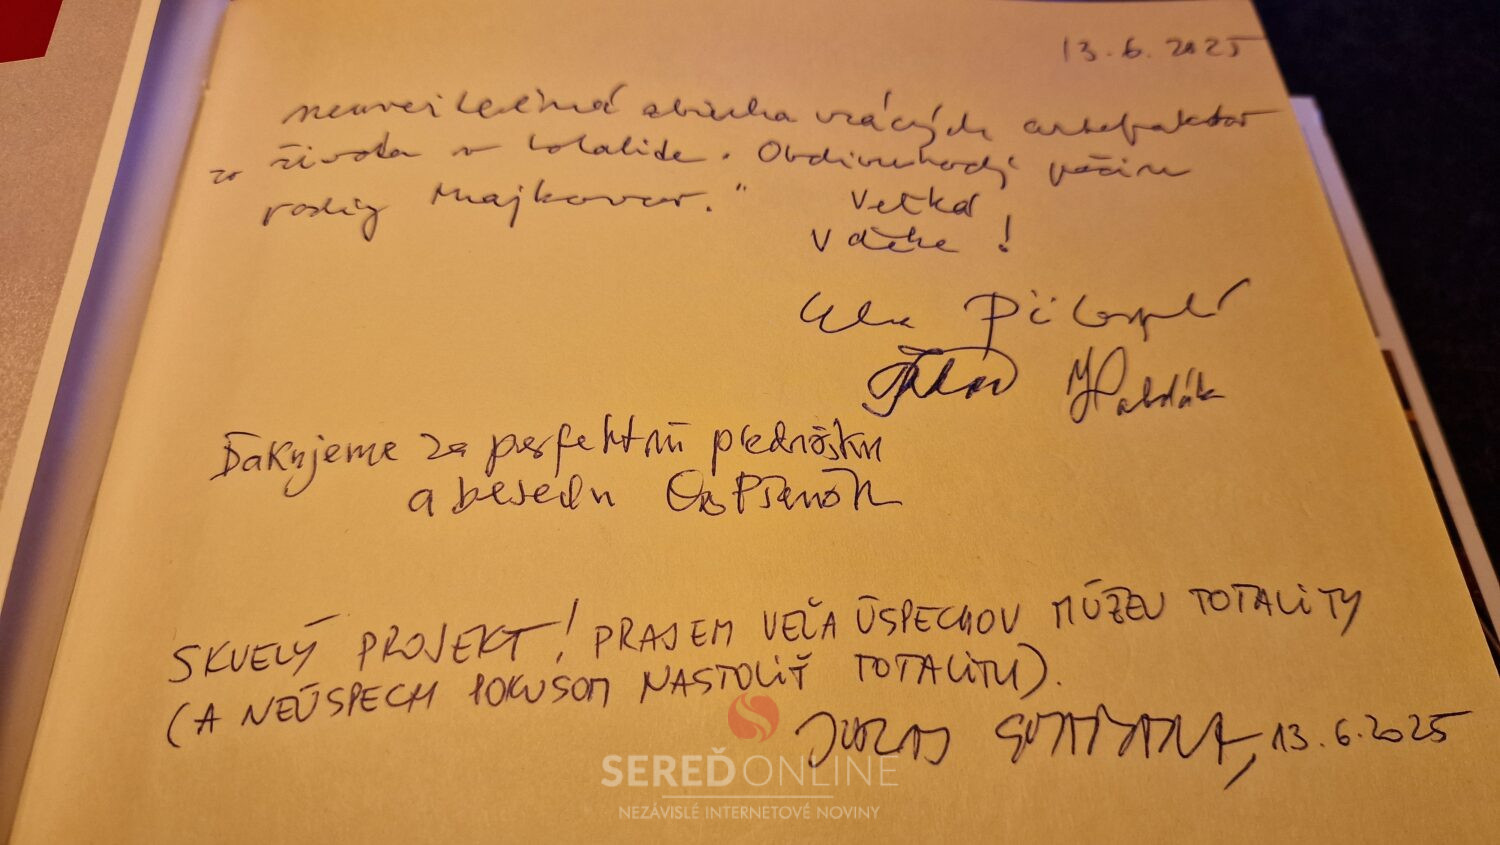 13.6.2025
neuveriteľná zbierka vzácných artefaktov
zo života v totalite. Obdivuhodý počin
rodiny Majkovar."
Veľká
vďaka!
Ďakujeme za perfektnú prednášku
a besedu
SKVELÝ PROJEKT! PRAJEM VEĽA ÚSPECHOV MÚZEU TOTALITY
(A NEÚSPECH POKUSOM NASTOLIŤ TOTALITU).
JURAJ 13.6.2025
SEREĎONLINE
NEZÁVISLÉ INTERNETOVÉ NOVINY